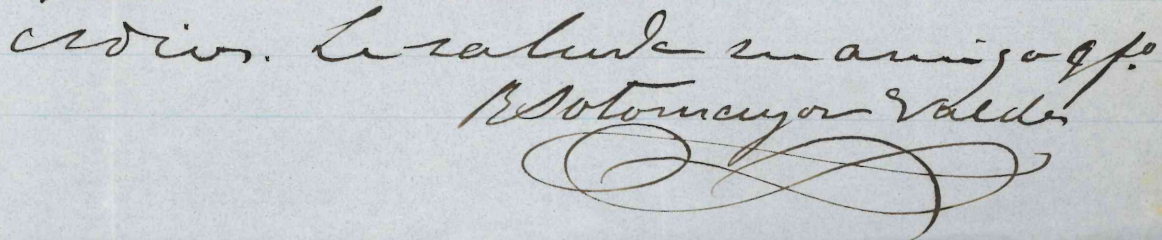 Le saluda su amigo qfo.
R Sotomayor Valdes